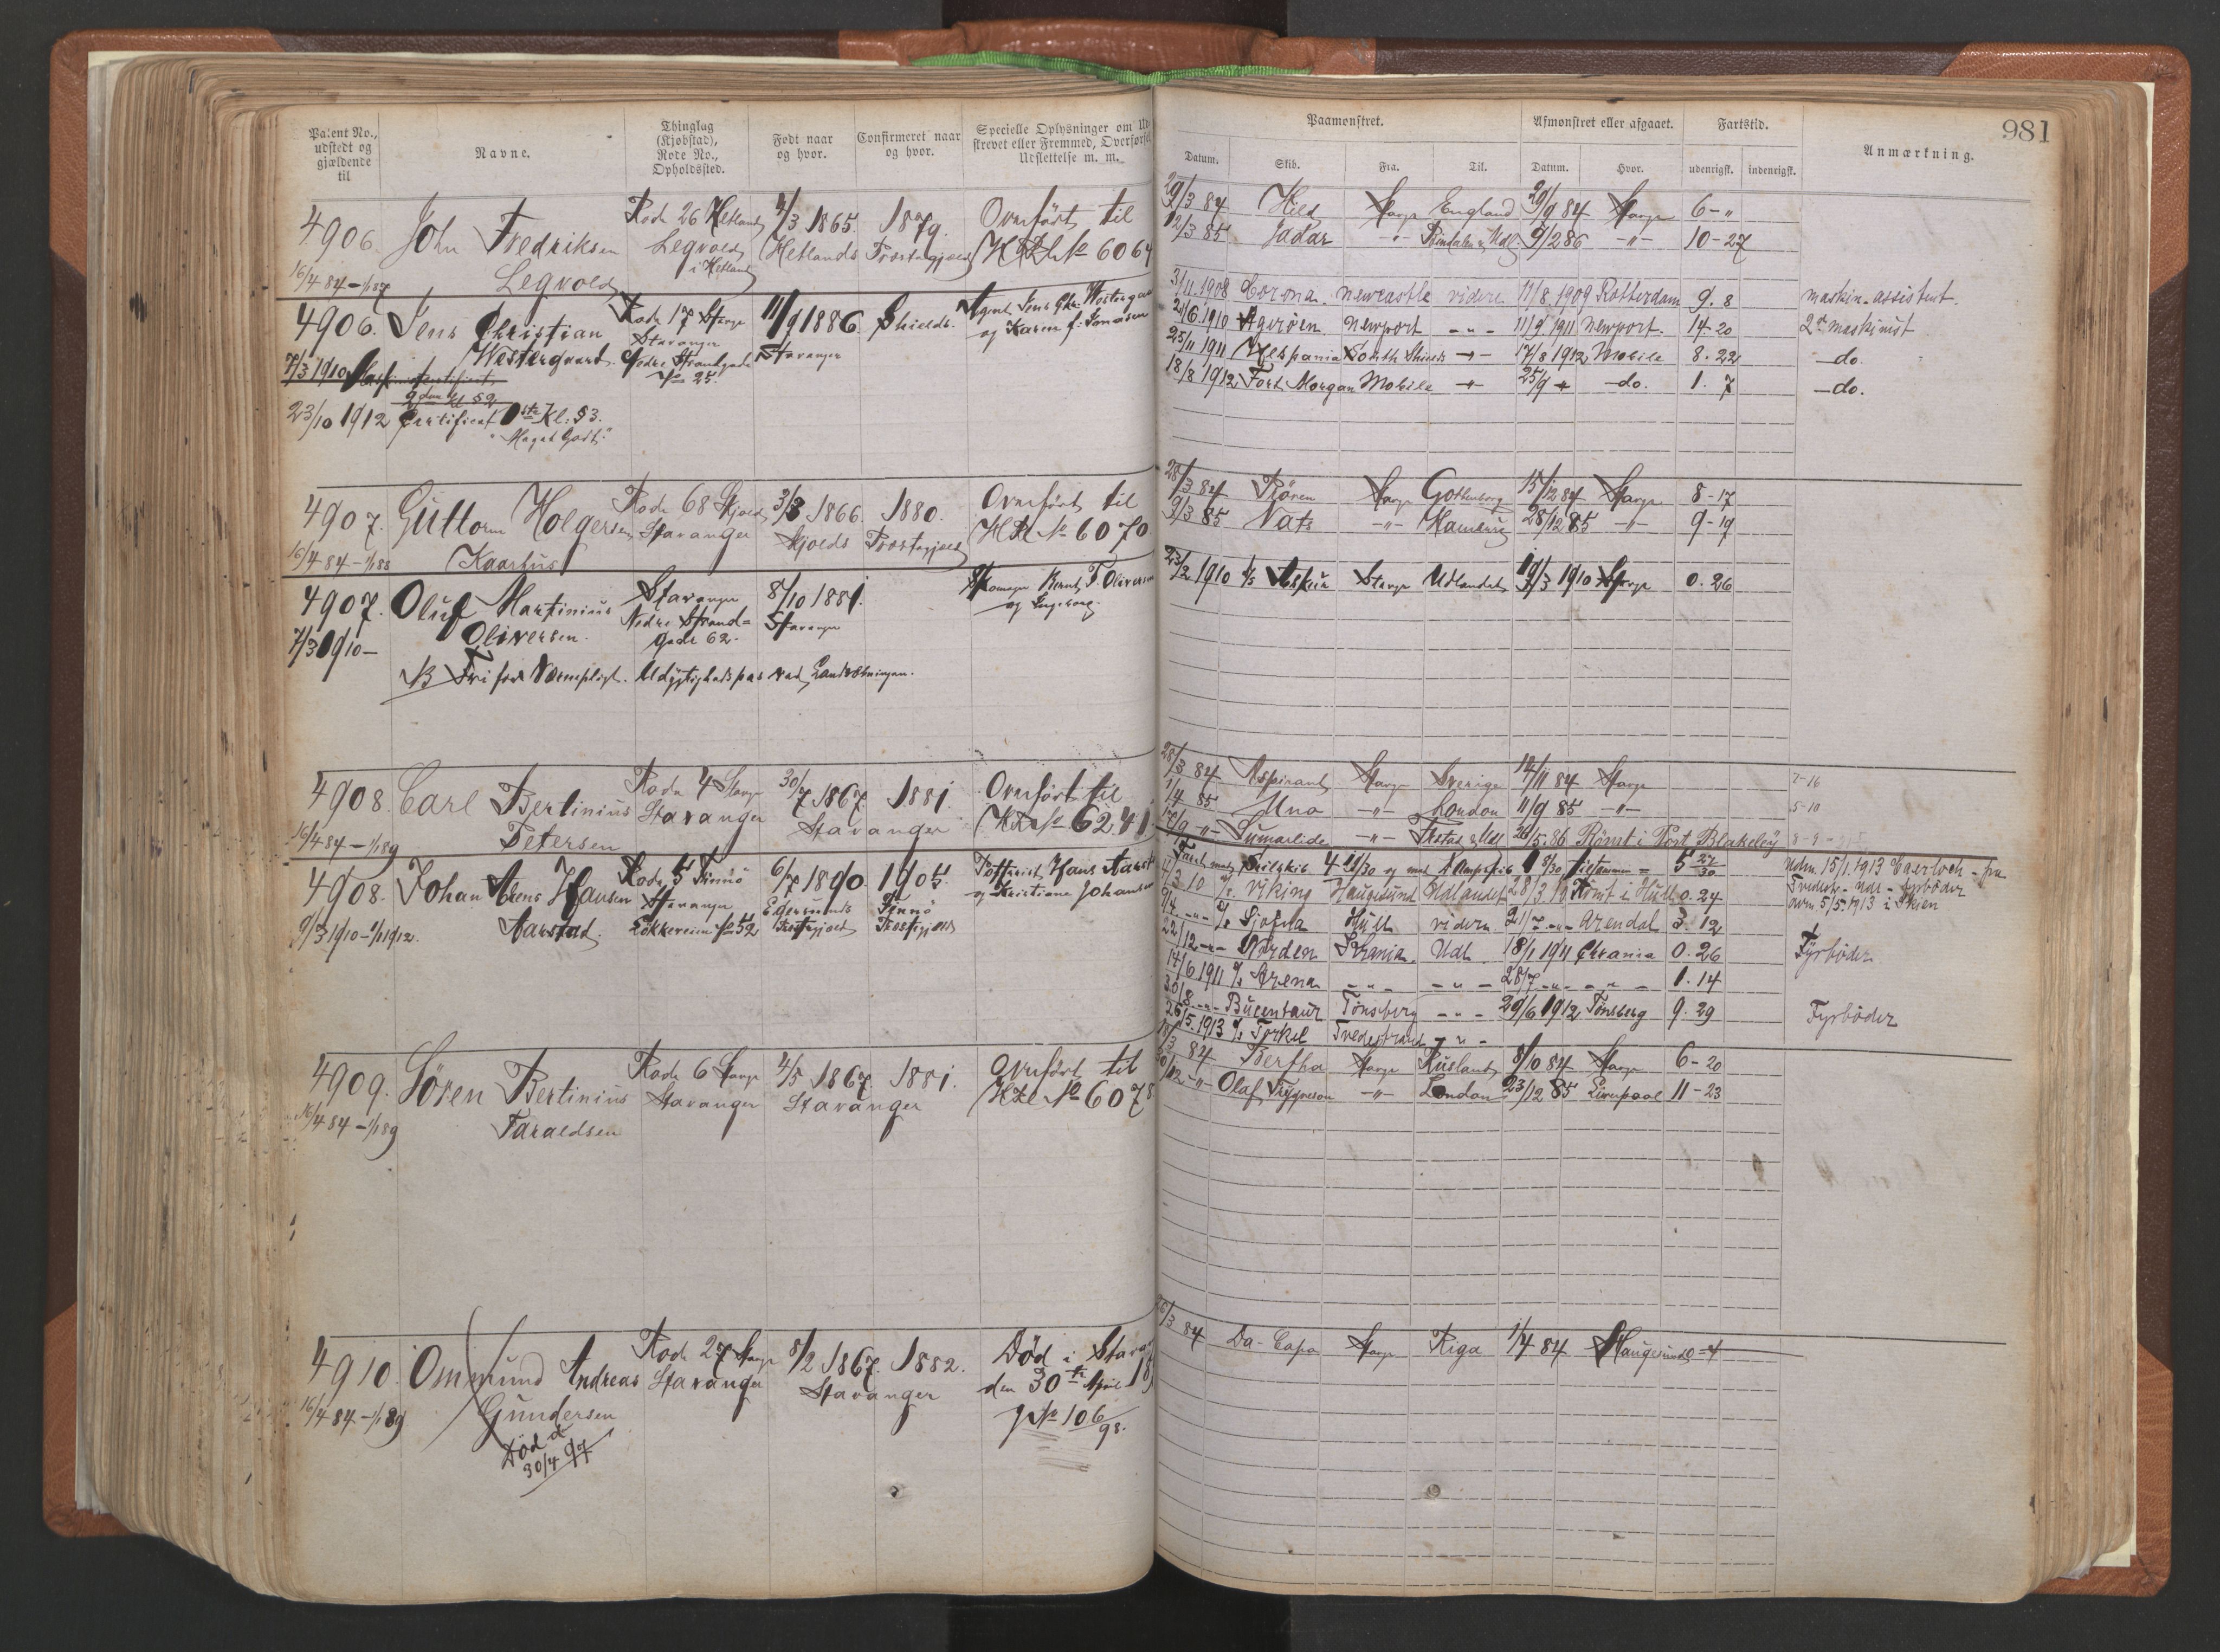 981
Patent No., udstedt og gjældende til
Navne.
Thinglag (Kjøbstad), Rode No., Opholdssted.
Født naar og hvor.
Confirmeret naar og hvor.
Specielle Oplysninger om Ud-
skrevet eller Fremmed, Overførsel
Udslettelse m. m.
Paamønstret.
Afmønstret eller afgaaet.
Fartstid.
Anmærkning.
Datum. Skib. Fra. Til. Datum. Hvor. udenrigsk. indenrigsk.
4906. John Fredriksen Rode 26 Hetland 4/3 1865. 1879. Overført til
Legvold Hetlands Præstegjæld No 6064
16/4 84 – 1/1 87 Legvold i Hetland
29/3 84 Hild Stavgr England 29/9 84 Stavgr 6-"
12/3 85 Jadar 9/2 86 -"- 10-27
4906. Jens Christian Rode 17 Stavgr 11/9 1886. Shields. Agent Jens Chr. Westergaard
Westergaard. Stavanger Stavanger og Karen f. Jonasen
7/3 1910 Nedre Strandgade No 25.
2den Kl 52
23/10 1912 Certificat 1ste Kl: 53.
"Meget Godt."
3/11 1908 Corona. Newcastle videre 11/8 1909 Rotterdam 9. 8 maskin-assistent.
24/6 1910 Agerøen Newport -"- 11/9 1911 Newport. 14-20 2. maskinist
25/11 1911 Hespania South Shields -"- 17/8 1912 Mobile 8. 22 do.
18/8 1912 Fort Morgan Mobile -"- 25/9 " do. 1. 7 do.
4907. Guttorm Holgersen Rode 68 Skjold 3/3 1866. 1880. Overført til
Stavanger Skjolds Præstegjæld No 6070.
16/4 84 – 1/1 88 Kaarhus
28/3 84 Stavgr Gothenborg 15/12 84 Stavgr 8-17
9/3 85 Nats -"- Hamburg 28/12 85 -"- 9-19
4907. Oluf Martinius Stavanger 8/10 1881. Bernt T. Oliversen
Oliversen. Nedre Strand= Stavanger og Ingeborg.
7/3 1910 – gade 62.
NB Fri for Værnepligt. Udygtighedspas ved Landvæbningen.
23/2 1910 Stavgr Udlandet 19/3 1910 Stavgr 0. 26
4908. Carl Bertinius Rode 4 Stavgr 30/7 1867 1881. Overført til
Stavanger Stavanger No 6241.
16/4 84 – 1/1 89 Petersen
28/3 84 Aspirant Stavgr Sverige 14/11 84 Stavgr 7-16
1/4 85 Una -"- London 11/9 85 -"- 5-10
Sumarlide -"- 26/5.86 Rømt i Port Blakeley 8-9
4908. Johan Arens Hansen Rode 5 Finnø 6/7 1890. 1905. Hans Aarstad
Stavanger Egersunds Finnø og Kristiane Johansen
9/3 1910 – 1/1 1912. Aarstad. Løkkeveien No 52 Præstegjæld Præstegjæld
Fart med Seilskib 4 21/30 og med Dampskib 1 8/30 tilsammen = 5 29/30
4/3 10 Viking Haugesund Udlandet 28/3 10 Rømt i Hull 0. 24
Sjofna Hull videre 21/7 -"- Arendal 3. 12
22/12 -"- Norden Krania. Udl. 18/1 1911 Chrania 0. 26 Fyrbøder
14/6 1911 Arena -"- -"- 28/7 -"- -"- 1. 14
30/8 -"- Bucentaur Tønsberg -"- 29/6 1912 Tønsberg 9. 29 Fyrbøder
26/5. 1913 Torkel Tvedestrand -"-
Udm. 15/1. 1913 Caerloch - fra
Tvedestr.- Udl - fyrbøder
avm. 5/5. 1913 i Skien
4909. Søren Bertinius Rode 6 Stavgr 4/5 1867. 1881. Overført til
Stavanger Stavanger No 6078
16/4 84 – 1/1 89 Taraldsen
84 Bertha Stavgr Rusland 8/10 84 Stavgr 6-20
Olaf Trygveson -"- London 23/12 85 Liverpool 11-23
4910. Ommund Andreas Rode 27 Stavgr 8/2 1867. 1882. Død i Stavan
Stavanger Stavanger den 30te April 18
16/4 84 – 1/1 89 Gundersen No 106/98.
Død d
30/4 97
3 84 Da-Capo Stavgr Riga 1/4 84 Haugesund 0-4